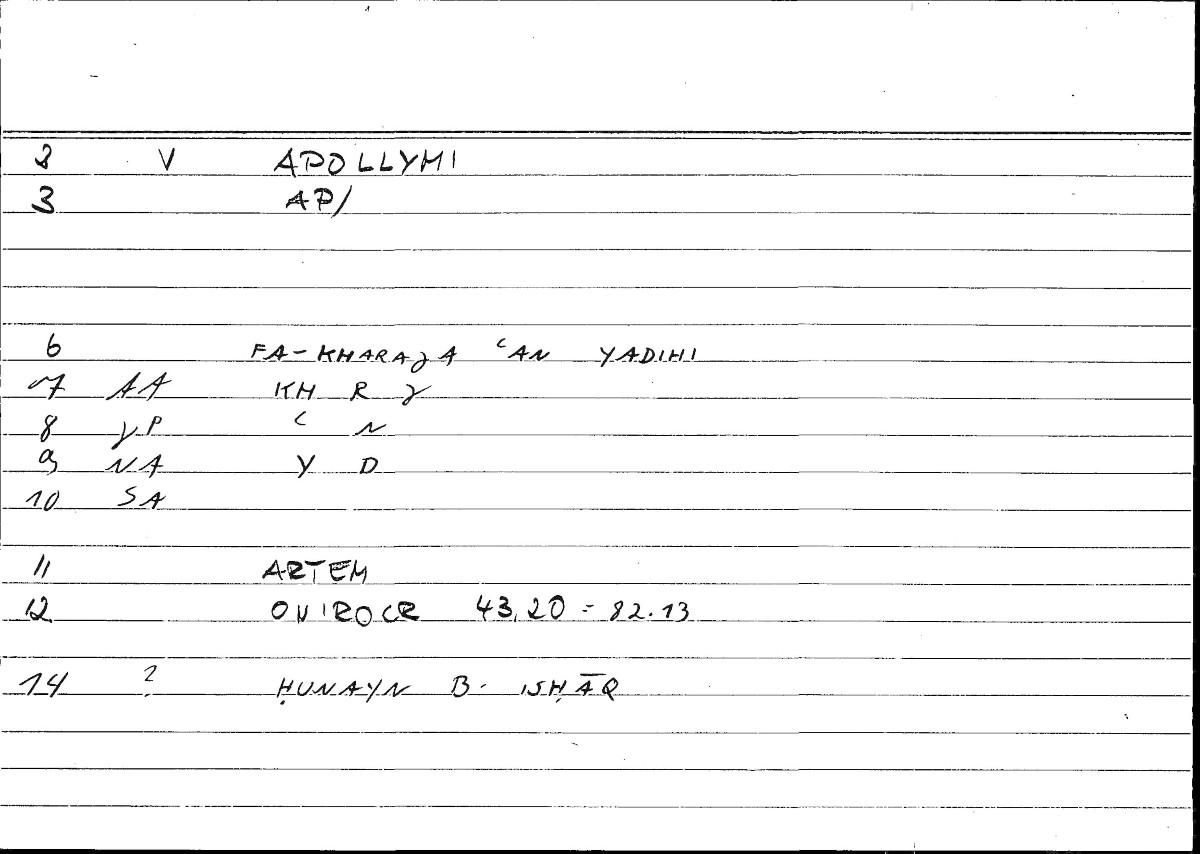 2 V APOLLYMI
3 AP/
6 FA-KHARAJA ʿAN YADIHI
7 AA KH R J
8 JP ʿ N
9 NA Y D
10 SA
11 ARTEM
12 ONIROCR 43,20 = 82.13
14 ? ḤUNAYN B. ISḤĀQ